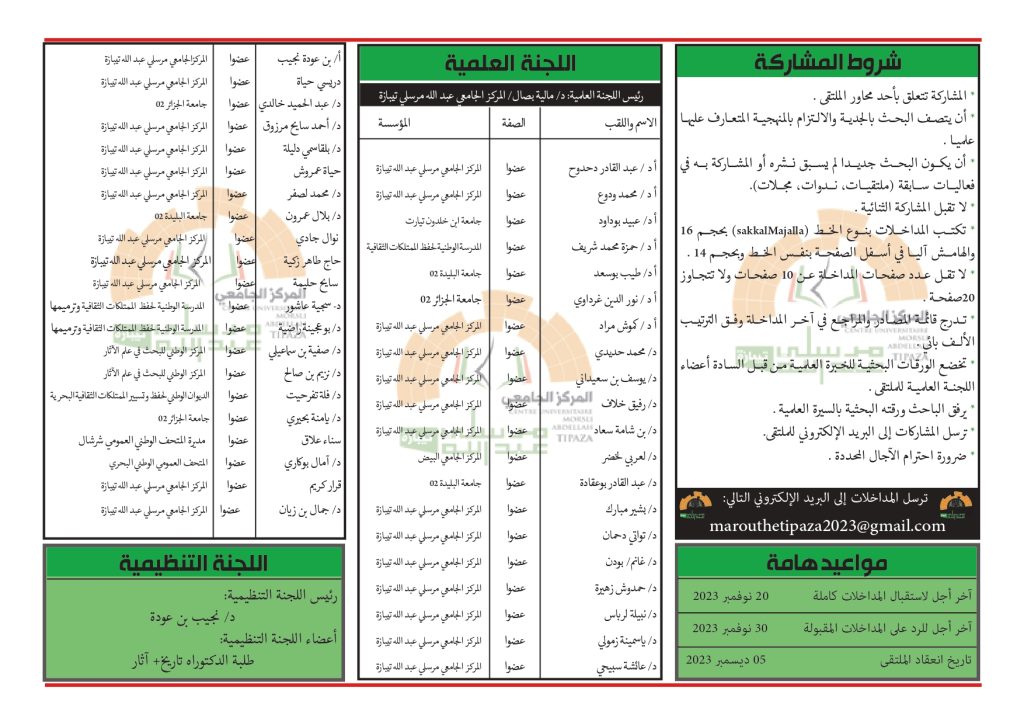 شروط المشاركة
• المشاركة تتعلق بأحد محاور الملتقى .
• أن يتصف البحث بالجدية والالتزام بالمنهجية المتعارف عليها
علميا .
• أن يكون البحث جديدا لم يسبق نشره أو المشاركة به في
فعاليات سابقة (ملتقيات، ندوات، مجلات).
• لا تقبل المشاركة الثنائية .
• تكتب المداخلات بنوع الخط (sakkalMajalla) بحجم 16
والهامش آليا في أسفل الصفحة بنفس الخط وبحجم 14 .
• لا تقل عدد صفحات المداخلة عن 10 صفحات ولا تتجاوز
20صفحة .
• تدرج قائمة المصادر والمراجع في آخر المداخلة وفق الترتيب
الألف بائي.
• تخضع الورقات البحثية للخبرة العلمية من قبل السادة أعضاء
اللجنة العلمية للملتقى .
• يرفق الباحث ورقته البحثية بالسيرة العلمية .
• ترسل المشاركات إلى البريد الإلكتروني للملتقى.
• ضرورة احترام الآجال المحددة .
ترسل المداخلات إلى البريد الإلكتروني التالي:
marouthetipaza2023@gmail.com
مواعيد هامة
آخر أجل لاستقبال المداخلات كاملة 20 نوفمبر 2023
آخر أجل للرد على المداخلات المقبولة 30 نوفمبر 2023
تاريخ انعقاد الملتقى 05 ديسمبر 2023
اللجنة العلمية
رئيس اللجنة العلمية: د/ مالية بصال/ المركز الجامعي عبد الله مرسلي تيبازة
الاسم واللقب الصفة المؤسسة
أ د / عبد القادر دحدوح عضوا المركز الجامعي مرسلي عبد الله تيبازة
أ د / محمد ودوع عضوا المركز الجامعي مرسلي عبد الله تيبازة
أ د/ عبيد بوداود عضوا جامعة ابن خلدون تيارت
أ د/ حمزة محمد شريف عضوا المدرسة الوطنية لحفظ الممتلكات الثقافية
أ د/ طيب بوسعد عضوا جامعة البليدة 02
أ د/ نور الدين غرداوي عضوا جامعة الجزائر 02
أ د / كموش مراد عضوا المركز الجامعي مرسلي عبد الله تيبازة
د/ محمد حديدي عضوا المركز الجامعي مرسلي عبد الله تيبازة
د/ يوسف بن سعيداني عضوا المركز الجامعي مرسلي عبد الله تيبازة
د/ رفيق خلاف عضوا المركز الجامعي مرسلي عبد الله تيبازة
د/ بن شامة سعاد عضوا المركز الجامعي مرسلي عبد الله تيبازة
د/ لعربي لخضر عضوا المركز الجامعي البيض
د/ عبد القادر بوعقادة عضوا جامعة البليدة 02
د/ بشير مبارك عضوا المركز الجامعي مرسلي عبد الله تيبازة
د/ تواتي دحمان عضوا المركز الجامعي مرسلي عبد الله تيبازة
د/ غانم/ بودن عضوا المركز الجامعي مرسلي عبد الله تيبازة
د/ حمدوش زهيرة عضوا المركز الجامعي مرسلي عبد الله تيبازة
د/ نبيلة لرباس عضوا المركز الجامعي مرسلي عبد الله تيبازة
د/ ياسمينة زمولي عضوا المركز الجامعي مرسلي عبد الله تيبازة
د/ عائشة سبيحي عضوا المركز الجامعي مرسلي عبد الله تيبازة
أ/ بن عودة نجيب عضوا المركز الجامعي مرسلي عبد الله تيبازة
دريسي حياة عضوا المركز الجامعي مرسلي عبد الله تيبازة
د/ عبد الحميد خالدي عضوا جامعة الجزائر 02
د/ أحمد سايح مرزوق عضوا المركز الجامعي مرسلي عبد الله تيبازة
د/ بلقاسمي دليلة عضوا المركز الجامعي مرسلي عبد الله تيبازة
حياة عمروش عضوا المركز الجامعي مرسلي عبد الله تيبازة
د/ محمد لصفر عضوا المركز الجامعي مرسلي عبد الله تيبازة
د/ بلال عمرون عضوا جامعة البليدة 02
نوال جادي عضوا المركز الجامعي مرسلي عبد الله تيبازة
حاج طاهر زكية عضوا المركز الجامعي مرسلي عبد الله تيبازة
سايح حليمة عضوا المركز الجامعي مرسلي عبد الله تيبازة
د. سجية عاشور عضوا المدرسة الوطنية لحفظ الممتلكات الثقافية وترميمها
د/ بوعجينة راضية عضوا المدرسة الوطنية لحفظ الممتلكات الثقافية وترميمها
د/ صفية بن سماعيلي عضوا المركز الوطني للبحث في علم الآثار
د/ نزيم بن صالح عضوا المركز الوطني للبحث في علم الآثار
د/ فلة تفرحيت عضوا الديوان الوطني لحفظ وتسيير الممتلكات الثقافية البحرية
د/ يامنة بحيري عضوا جامعة الجزائر 02
سناء علاق عضوا مديرة المتحف الوطني العمومي شرشال
د/ آمال بوكاري عضوا المتحف العمومي الوطني البحري
قرار كريم عضوا المركز الجامعي مرسلي عبد الله تيبازة
د/ جمال بن زيان عضوا المركز الجامعي مرسلي عبد الله تيبازة
اللجنة التنظيمية
رئيس اللجنة التنظيمية:
د/ نجيب بن عودة
أعضاء اللجنة التنظيمية:
طلبة الدكتوراه تاريخ+ آثار